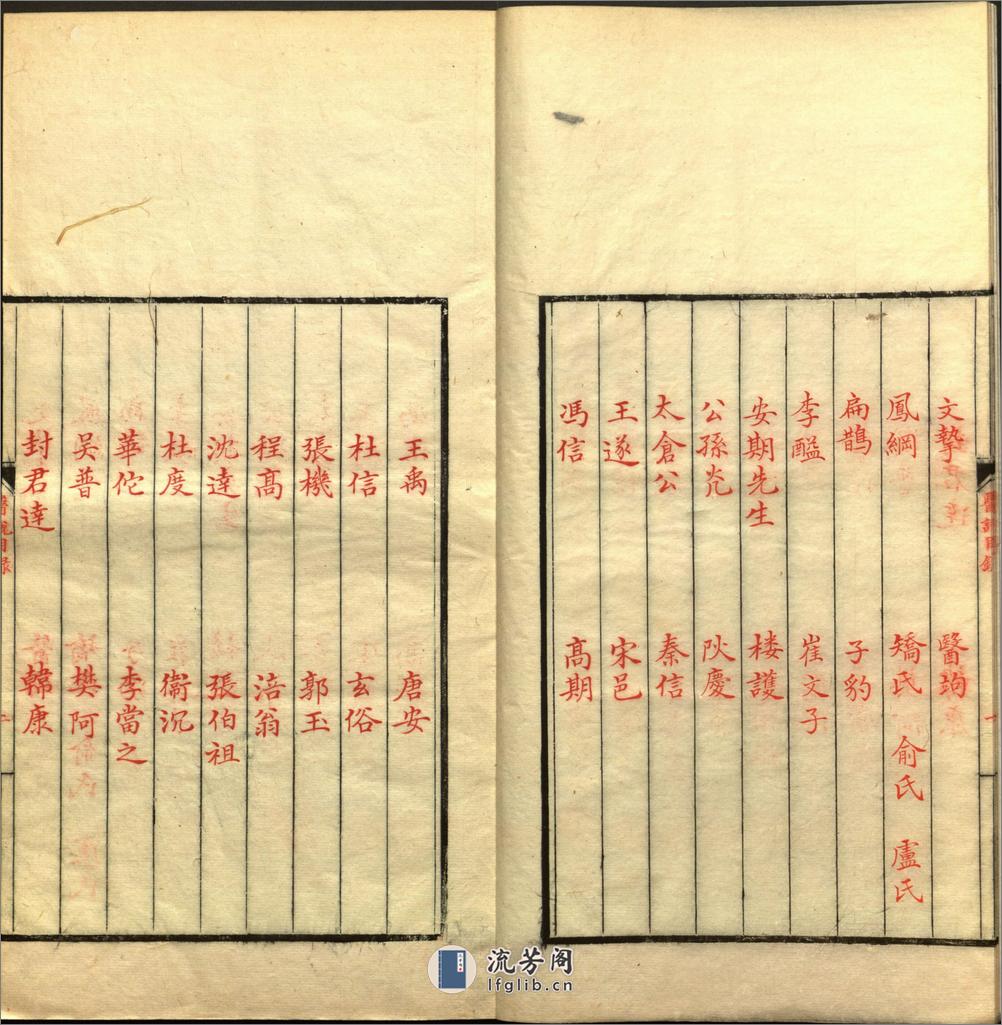 文摯 醫竘
鳳綱 矯氏 俞氏 盧氏
扁鵲 子豹
李醯 崔文子
安期先生 楼護
公孫光
太倉公 秦信
王遂 宋邑
馮信 高期
王禹 唐安
杜信 玄俗
張機 郭玉
程高 涪翁
沈逵 張伯祖
杜度 衞沉
華佗 李當之
吳普 樊阿
封君逹 韓康
醫說目錄
流芳阁
lfglib.cn